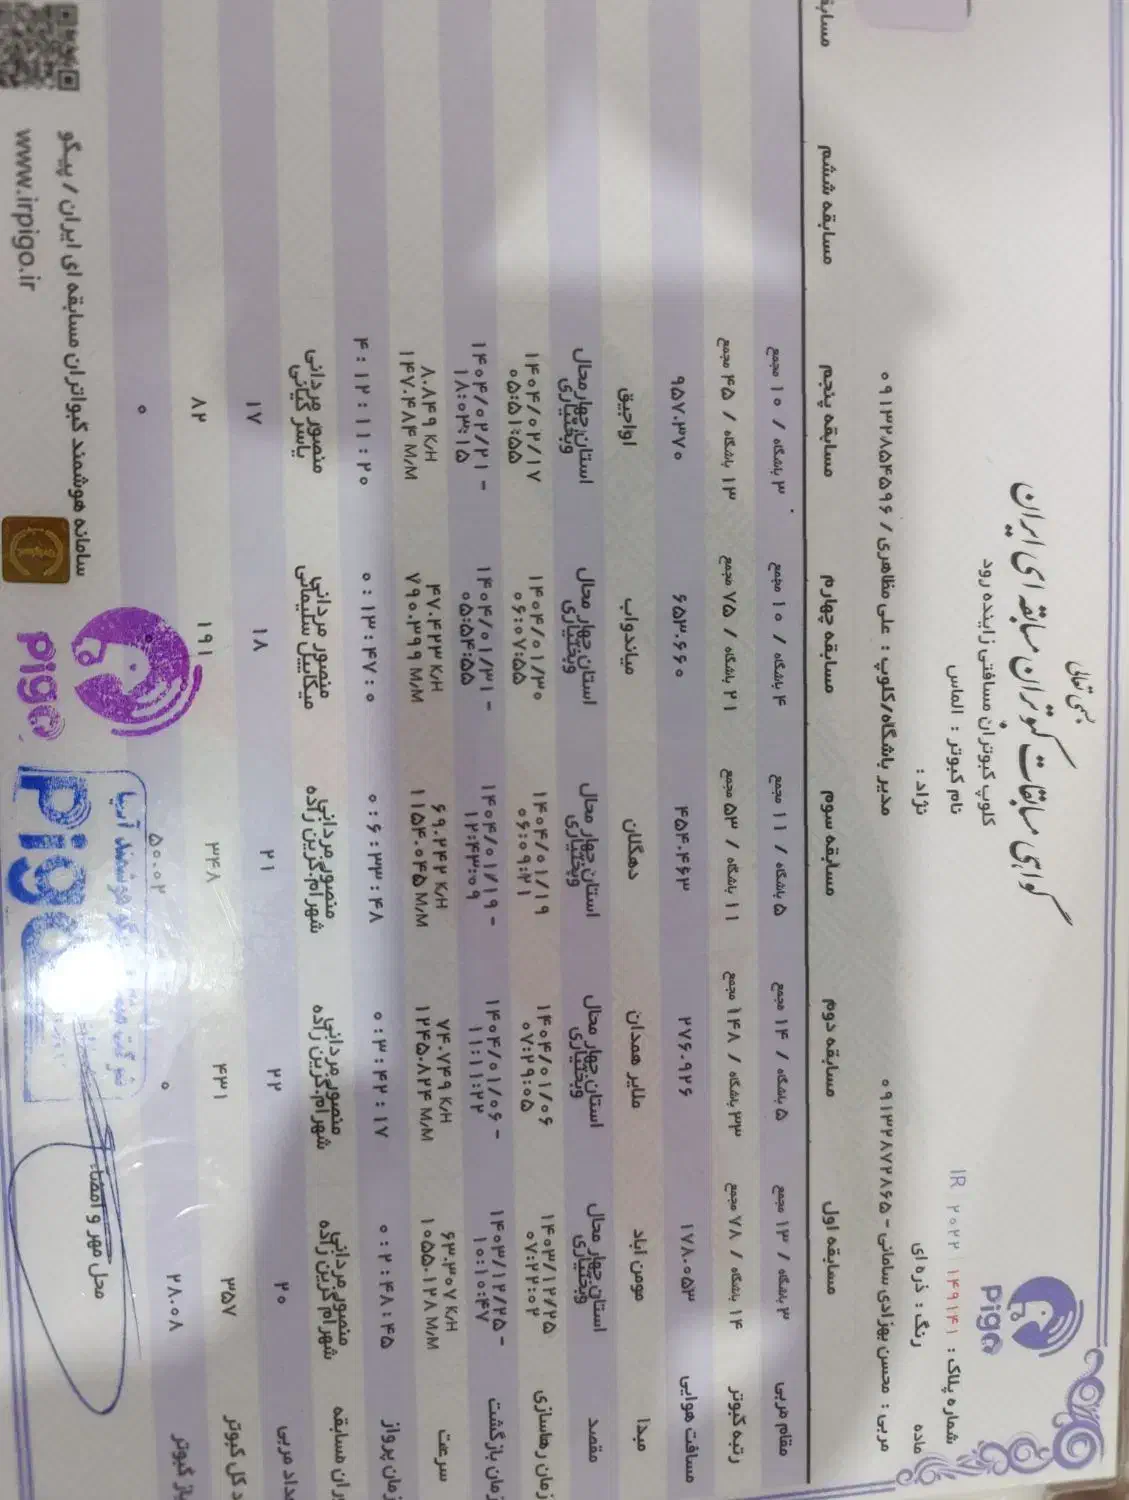 بسمی تعالی
گواهی مسابقات کبوتران مسابقه ای ایران
کلوپ کبوتران مسافتی زاینده رود
Pigo
شماره پلاک : IR ۲۰۲۲ ۱۴۹۱۴۱
نام کبوتر : الماس
ماده
رنگ : ذره ای
نژاد :
مربی : محسن بهزادی سامانی - ۰۹۱۳۲۸۷۲۸۶۵
مدیر باشگاه/کلوپ : علی مظاهری / ۰۹۱۳۲۸۵۴۵۹۶
مسابقه اول مسابقه دوم مسابقه سوم مسابقه چهارم مسابقه پنجم مسابقه ششم
مقام مربی ۳ باشگاه / ۱۳ مجمع ۵ باشگاه / ۱۴ مجمع ۵ باشگاه / ۱۱ مجمع ۴ باشگاه / ۱۰ مجمع ۳ باشگاه / ۱۰ مجمع
رتبه کبوتر ۱۴ باشگاه / ۷۸ مجمع ۳۳ باشگاه / ۱۴۸ مجمع ۱۱ باشگاه / ۵۳ مجمع ۲۱ باشگاه / ۷۵ مجمع ۱۳ باشگاه / ۴۵ مجمع
مسافت هوایی ۱۷۸.۰۵۳ ۲۷۶.۹۲۶ ۴۵۴.۴۶۳ ۶۵۳.۶۶۰ ۹۵۷.۳۷۰
مبدا مومن اباد ملایر همدان دهگلان میاندواب اواجیق
مقصد استان چهار محال وبختیاری استان چهار محال وبختیاری استان چهار محال وبختیاری استان چهار محال وبختیاری استان چهار محال وبختیاری
زمان رهاسازی ۱۴۰۳/۱۲/۲۵ ۰۷:۲۲:۰۲ ۱۴۰۴/۰۱/۰۶ ۰۷:۲۹:۰۵ ۱۴۰۴/۰۱/۱۹ ۰۶:۰۹:۲۱ ۱۴۰۴/۰۱/۳۰ ۰۶:۰۷:۵۵ ۱۴۰۴/۰۲/۱۷ ۰۵:۵۱:۵۵
زمان بازگشت ۱۴۰۳/۱۲/۲۵ - ۱۰:۱۰:۴۷ ۱۴۰۴/۰۱/۰۶ - ۱۱:۱۱:۲۲ ۱۴۰۴/۰۱/۱۹ - ۱۲:۴۳:۰۹ ۱۴۰۴/۰۱/۳۱ - ۰۵:۵۴:۵۵ ۱۴۰۴/۰۲/۲۱ - ۱۸:۰۳:۱۵
سرعت ۶۳.۳۰۷ K/H ۱۰۵۵.۱۲۸ M/M ۷۴.۷۴۹ K/H ۱۲۴۵.۸۲۴ M/M ۶۹.۲۴۲ K/H ۱۱۵۴.۰۴۵ M/M ۴۷.۴۲۳ K/H ۷۹۰.۳۹۹ M/M ۸.۸۴۹ K/H ۱۴۷.۴۸۴ M/M
زمان پرواز ۰:۲:۴۸:۴۵ ۰:۳:۴۲:۱۷ ۰:۶:۳۳:۴۸ ۰:۱۳:۴۷:۰ ۴:۱۲:۱۱:۲۰
مسابقه منصور مردانی شهرام گزین زاده منصور مردانی شهرام گزین زاده منصور مردانی شهرام گزین زاده منصور مردانی میکاییل سلیمانی منصور مردانی یاسر کیانی
مربی ۲۰ ۲۲ ۲۱ ۱۸ ۱۷
کل کبوتر ۳۵۷ ۴۳۱ ۳۴۸ ۱۹۱ ۸۲
کبوتر ۲۸.۰۸ ۰ ۵۰.۰۲ ۰ ۰
محل مهر و امضاء
Pigo
Pigo
سامانه هوشمند کبوتران مسابقه ای ایران / پیگو
www.irpigo.ir